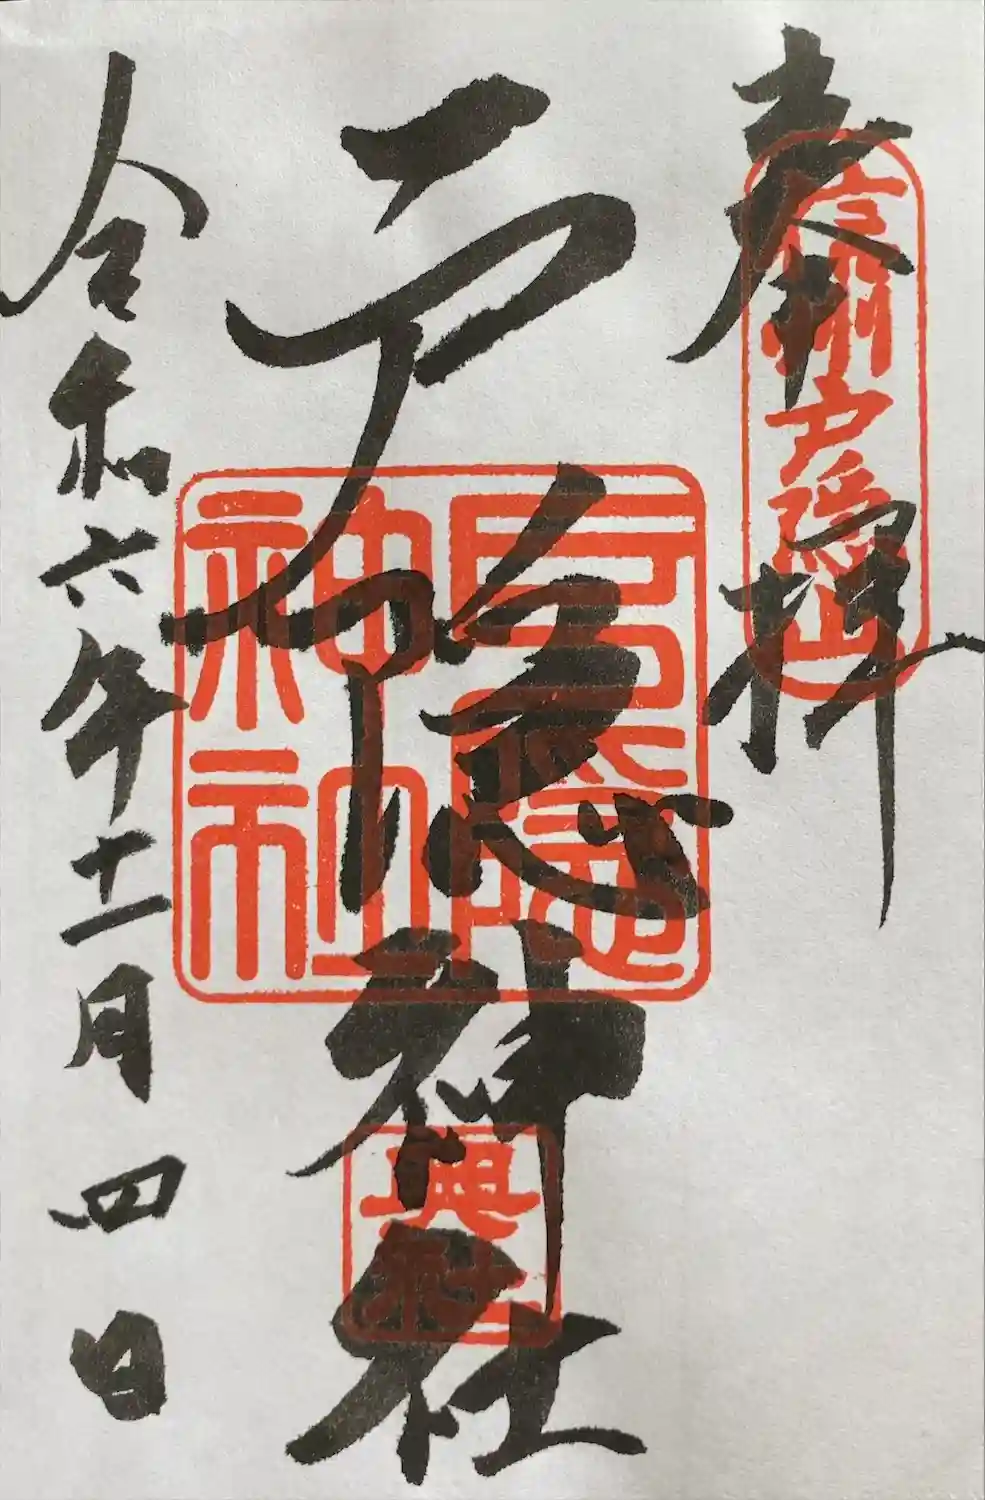 奉拝
信州戸隠山
戸隠神社
戸隠神社
奥社
令和六年十一月四日